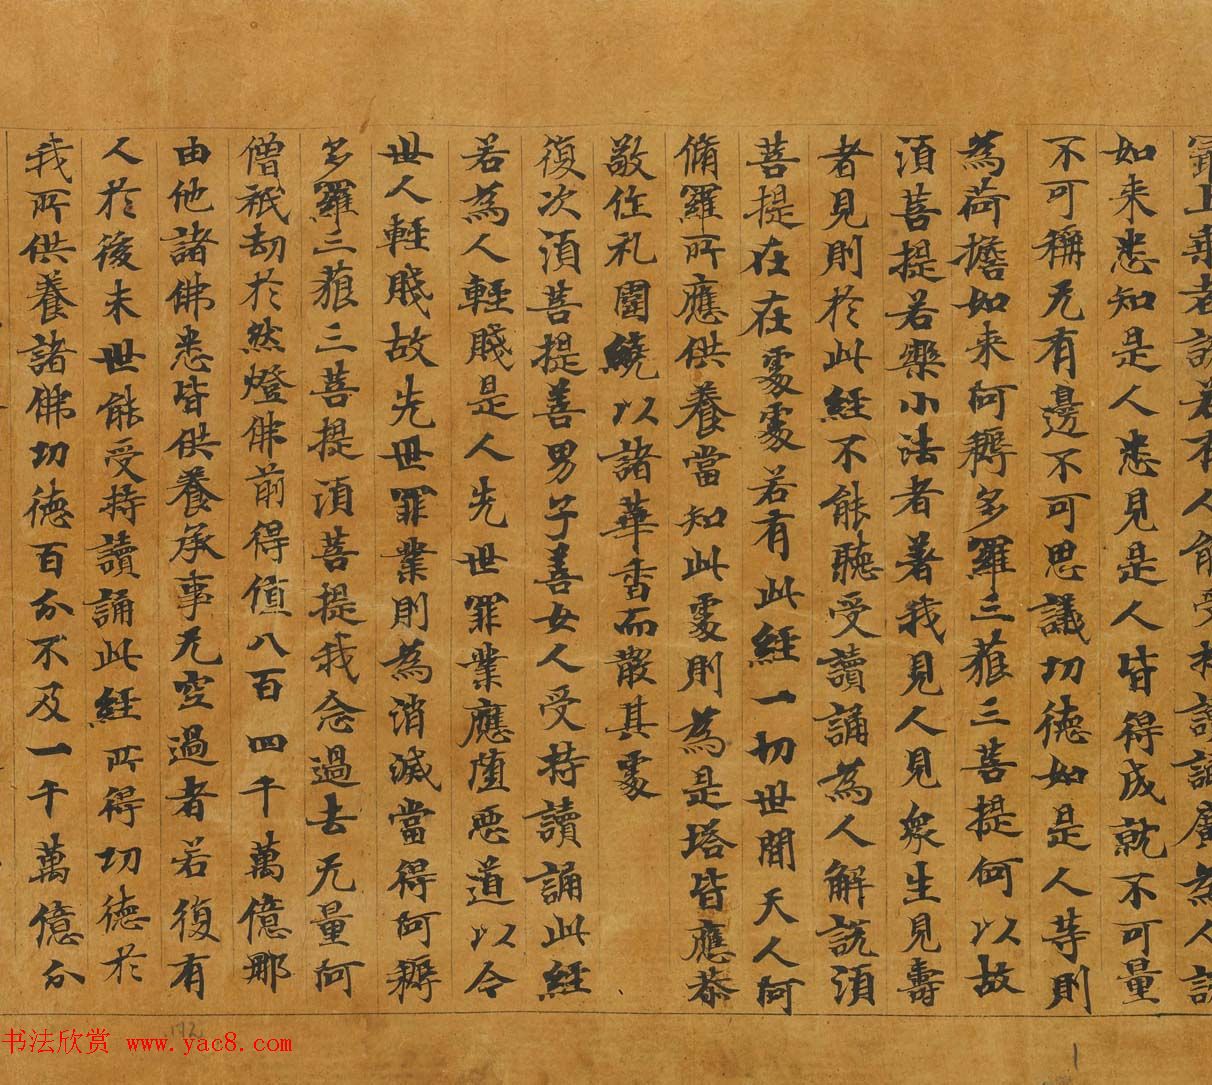 最上乘者說若有人能受持讀誦廣為人說
如来悉知是人悉見是人皆得成就不可量
不可稱无有邊不可思議功德如是人等則
為荷擔如来阿耨多羅三藐三菩提何以故
湏菩提若樂小法者著我見人見衆生見壽
者見則於此經不能聽受讀誦為人解說湏
菩提在在處處若有此經一切世間天人阿
脩羅所應供養當知此處則為是塔皆應恭
敬作礼圍繞以諸華香而散其處
復次湏菩提善男子善女人受持讀誦此經
若為人輕賤是人先世罪業應墮惡道以今
世人輕賤故先世罪業則為消滅當得阿耨
多羅三藐三菩提湏菩提我念過去无量阿
僧祇劫於然燈佛前得值八百四千萬億那
由他諸佛悉皆供養承事无空過者若復有
人於後末世能受持讀誦此經所得功德於
我所供養諸佛功德百分不及一千萬億分
书法欣赏 www.yac8.com